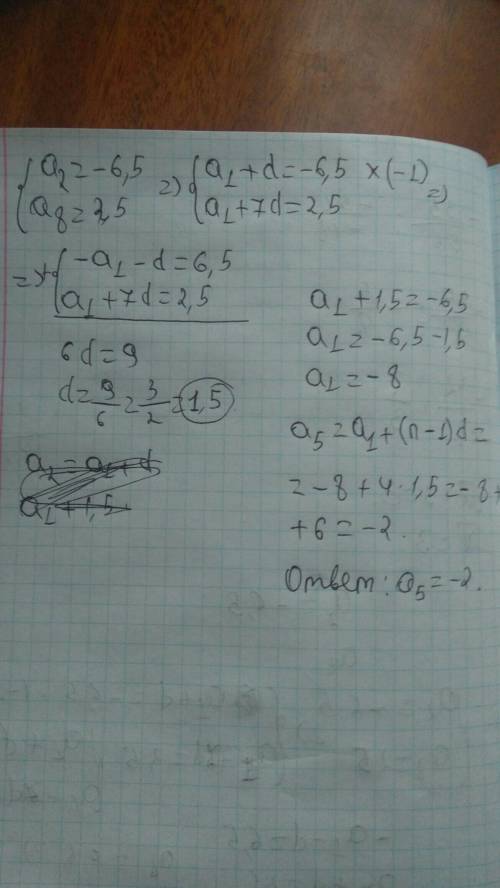 {a₂=-6,5 => {a₁+d=-6,5 ×(-1) =>
{a₈=2,5 {a₁+7d=2,5
=> +{-a₁-d=6,5
{a₁+7d=2,5
6d=9
d=9/6=3/2=1,5
a₁+1,5=-6,5
a₁=-6,5-1,5
a₁=-8
a₅=a₁+(n-1)d=
=-8+4·1,5=-8+
+6=-2.
Ответ: a₅=-2.